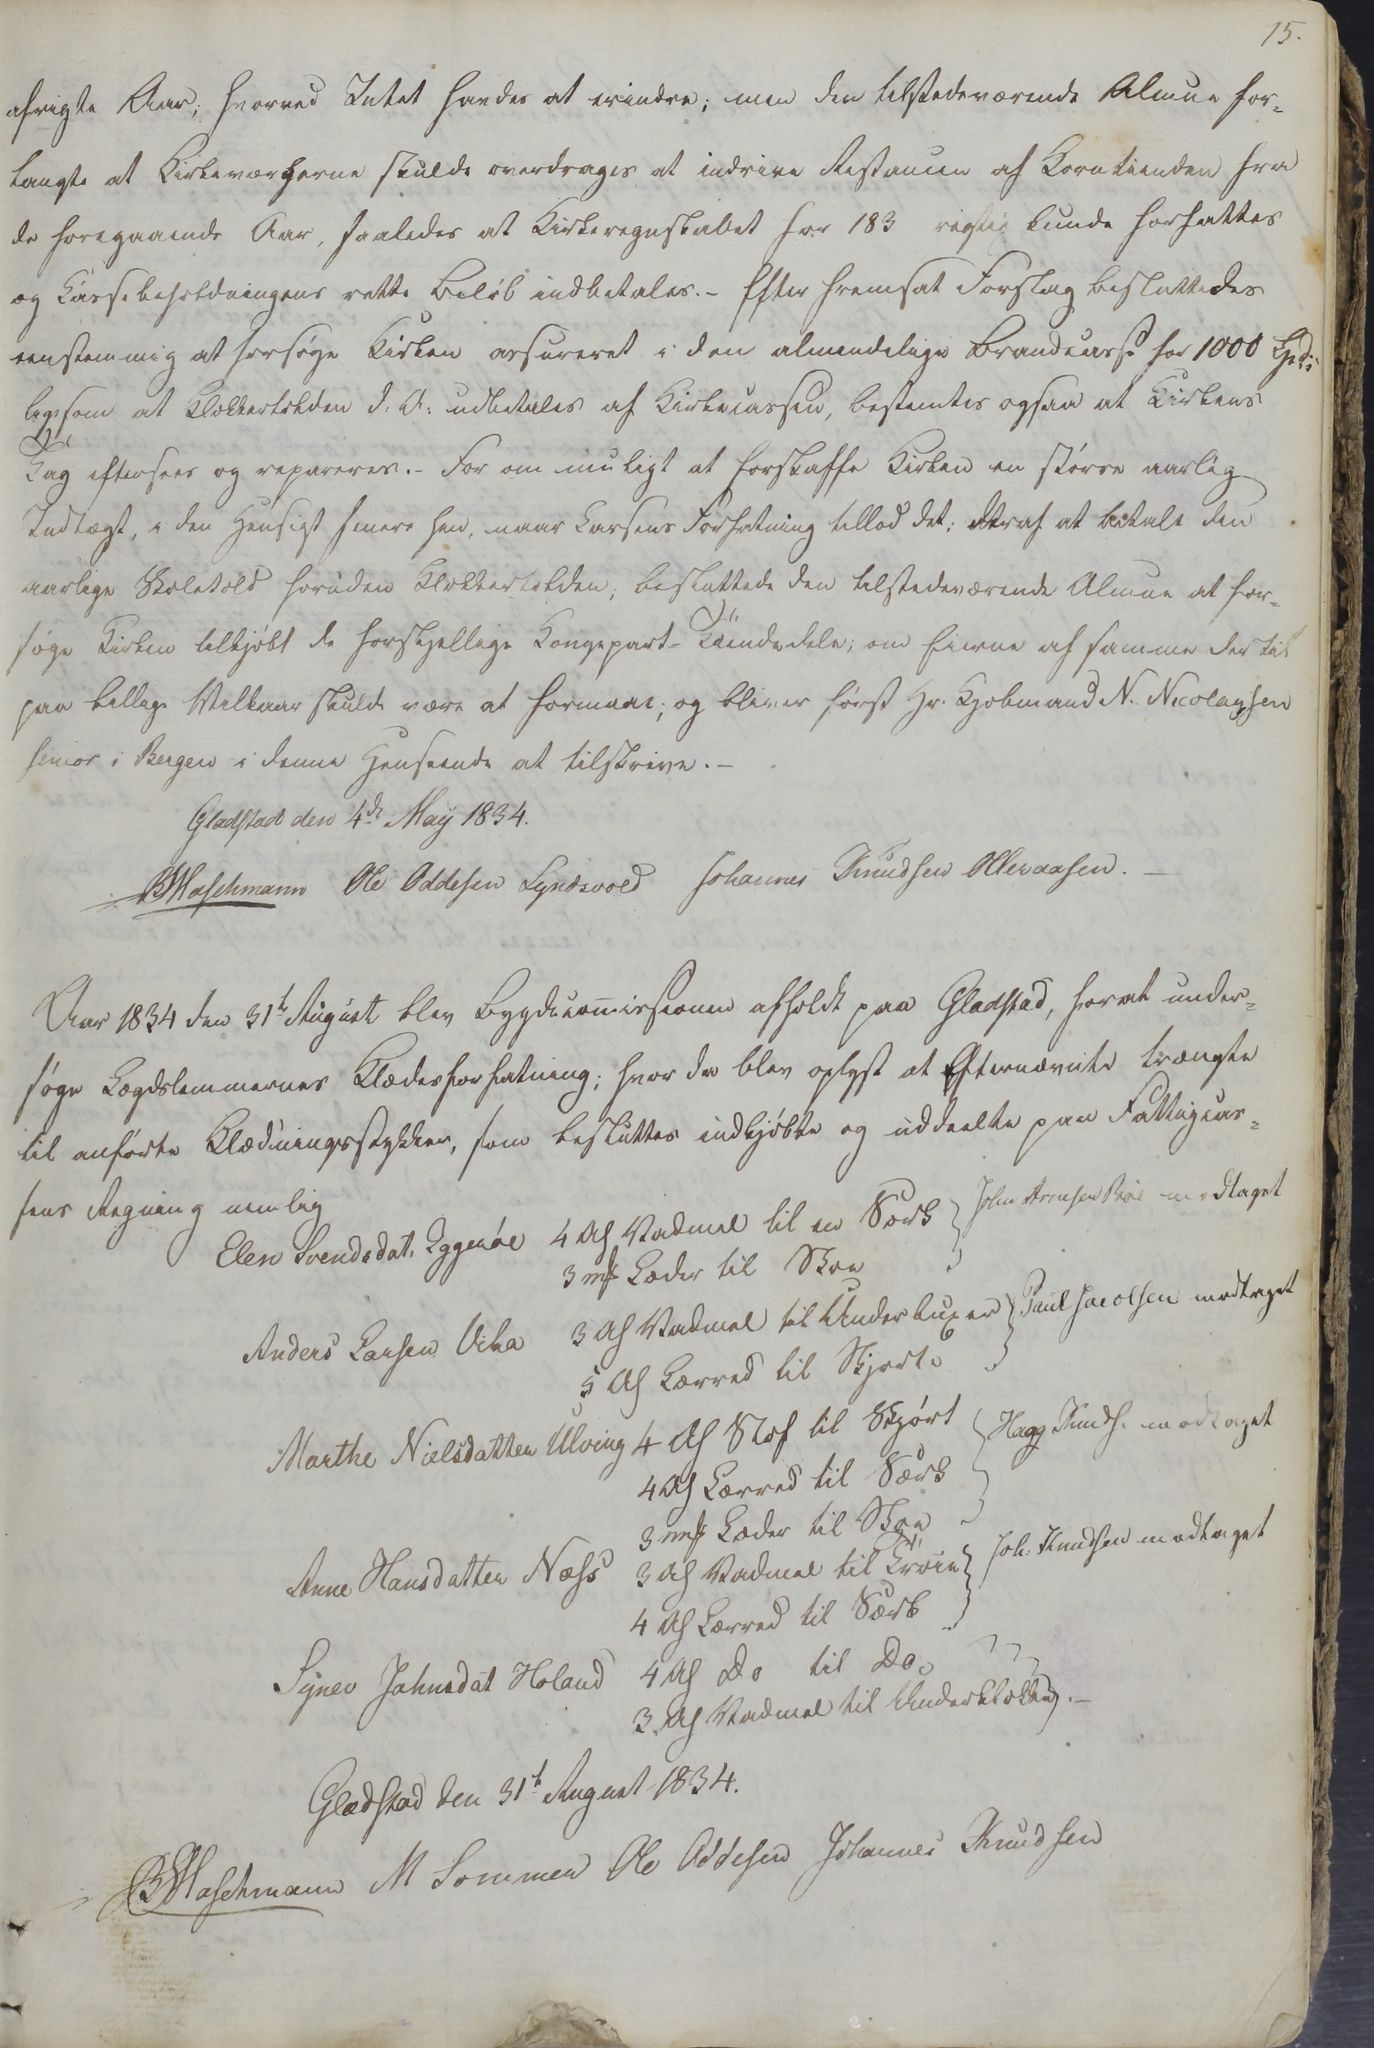 15.
afvigte Aar; hvorved Intet havdes at erindre; men den tilstedeværende Almue for-
langte at Kirkeværgerne skulde overdrages at indrive Restancen af Korntienden fra
de foregaaende Aar, saaledes at Kirkeregnskabet for 183 rigtig kunde forfattes
og Cassebeholdningens rette Beløb indbetales.- Efter fremsat Forslag besluttedes
eenstemmig at forsøge Kirken assureret i den almindelige Brandcasse for 1000 Spd:
ligesom at Klokkertolden d. A: udbetales af Kirkecassen, bestemtes ogsaa at Kirkens
Tag eftersees og repareres.- For om muligt at forskaffe Kirken en større aarlig
Indtægt, i den Hensigt senere hen, naar Cassens Forfatning tillod det; deraf at betale den
aarlige Skoletold foruden Klokkertolden, besluttede den tilstedeværende Almue at for-
søge Kirken tilkjøbt de forskjellige Kongepart-Tiendedele; om Eierne af samme dertil
paa billige Vilkaar skulde være at formaae; og bliver først Hr. Kjøbmand N. Nicolaysen
senior i Bergen i denne Henseende at tilskrive.-
Gladstad den 4de May 1834.
BMaschmann Ole Oddesen Synesvold Johannes Knudsen Olleraasen.-
Aar 1834 den 31t August blev Bygdecommissionen afholdt paa Gladstad, forat under-
søge Lægdslemmernes Klædesforfatning; hvor da blev oplyst at Efternævnte trængte
til anførte Klædningsstykker, som besluttes indkjøbte og uddeelte paa Fattigcas-
sens Regning nemlig
Elen Svendsdat. Eggesøe 4 Al Vadmel til en Særk } John Arensen modtaget
3 mk Læder til Skoe
Anders Larsen Vika 3 Al Vadmel til Underbuxer } Paul Jacobsen modtaget
5 Al Lærred til Skjorte
Marthe Nielsdatter Ulving 4 Al Stof til Skjørt } Hagg Knuds. modtaget
4 Al Lærred til Særk
3 mk Læder til Skoe
Anne Hansdatter Næss 3 Al Vadmel til Trøie } Joh. Knudsen modtaget
4 Al Lærred til Særk
Synev Johnsdat Holand 4 Al Do til Do.
3 Al Vadmel til Underklokke.-
Gladstad den 31t August 1834.
BMaschmann M Sommer Ole Oddesen Johannes Knudsen